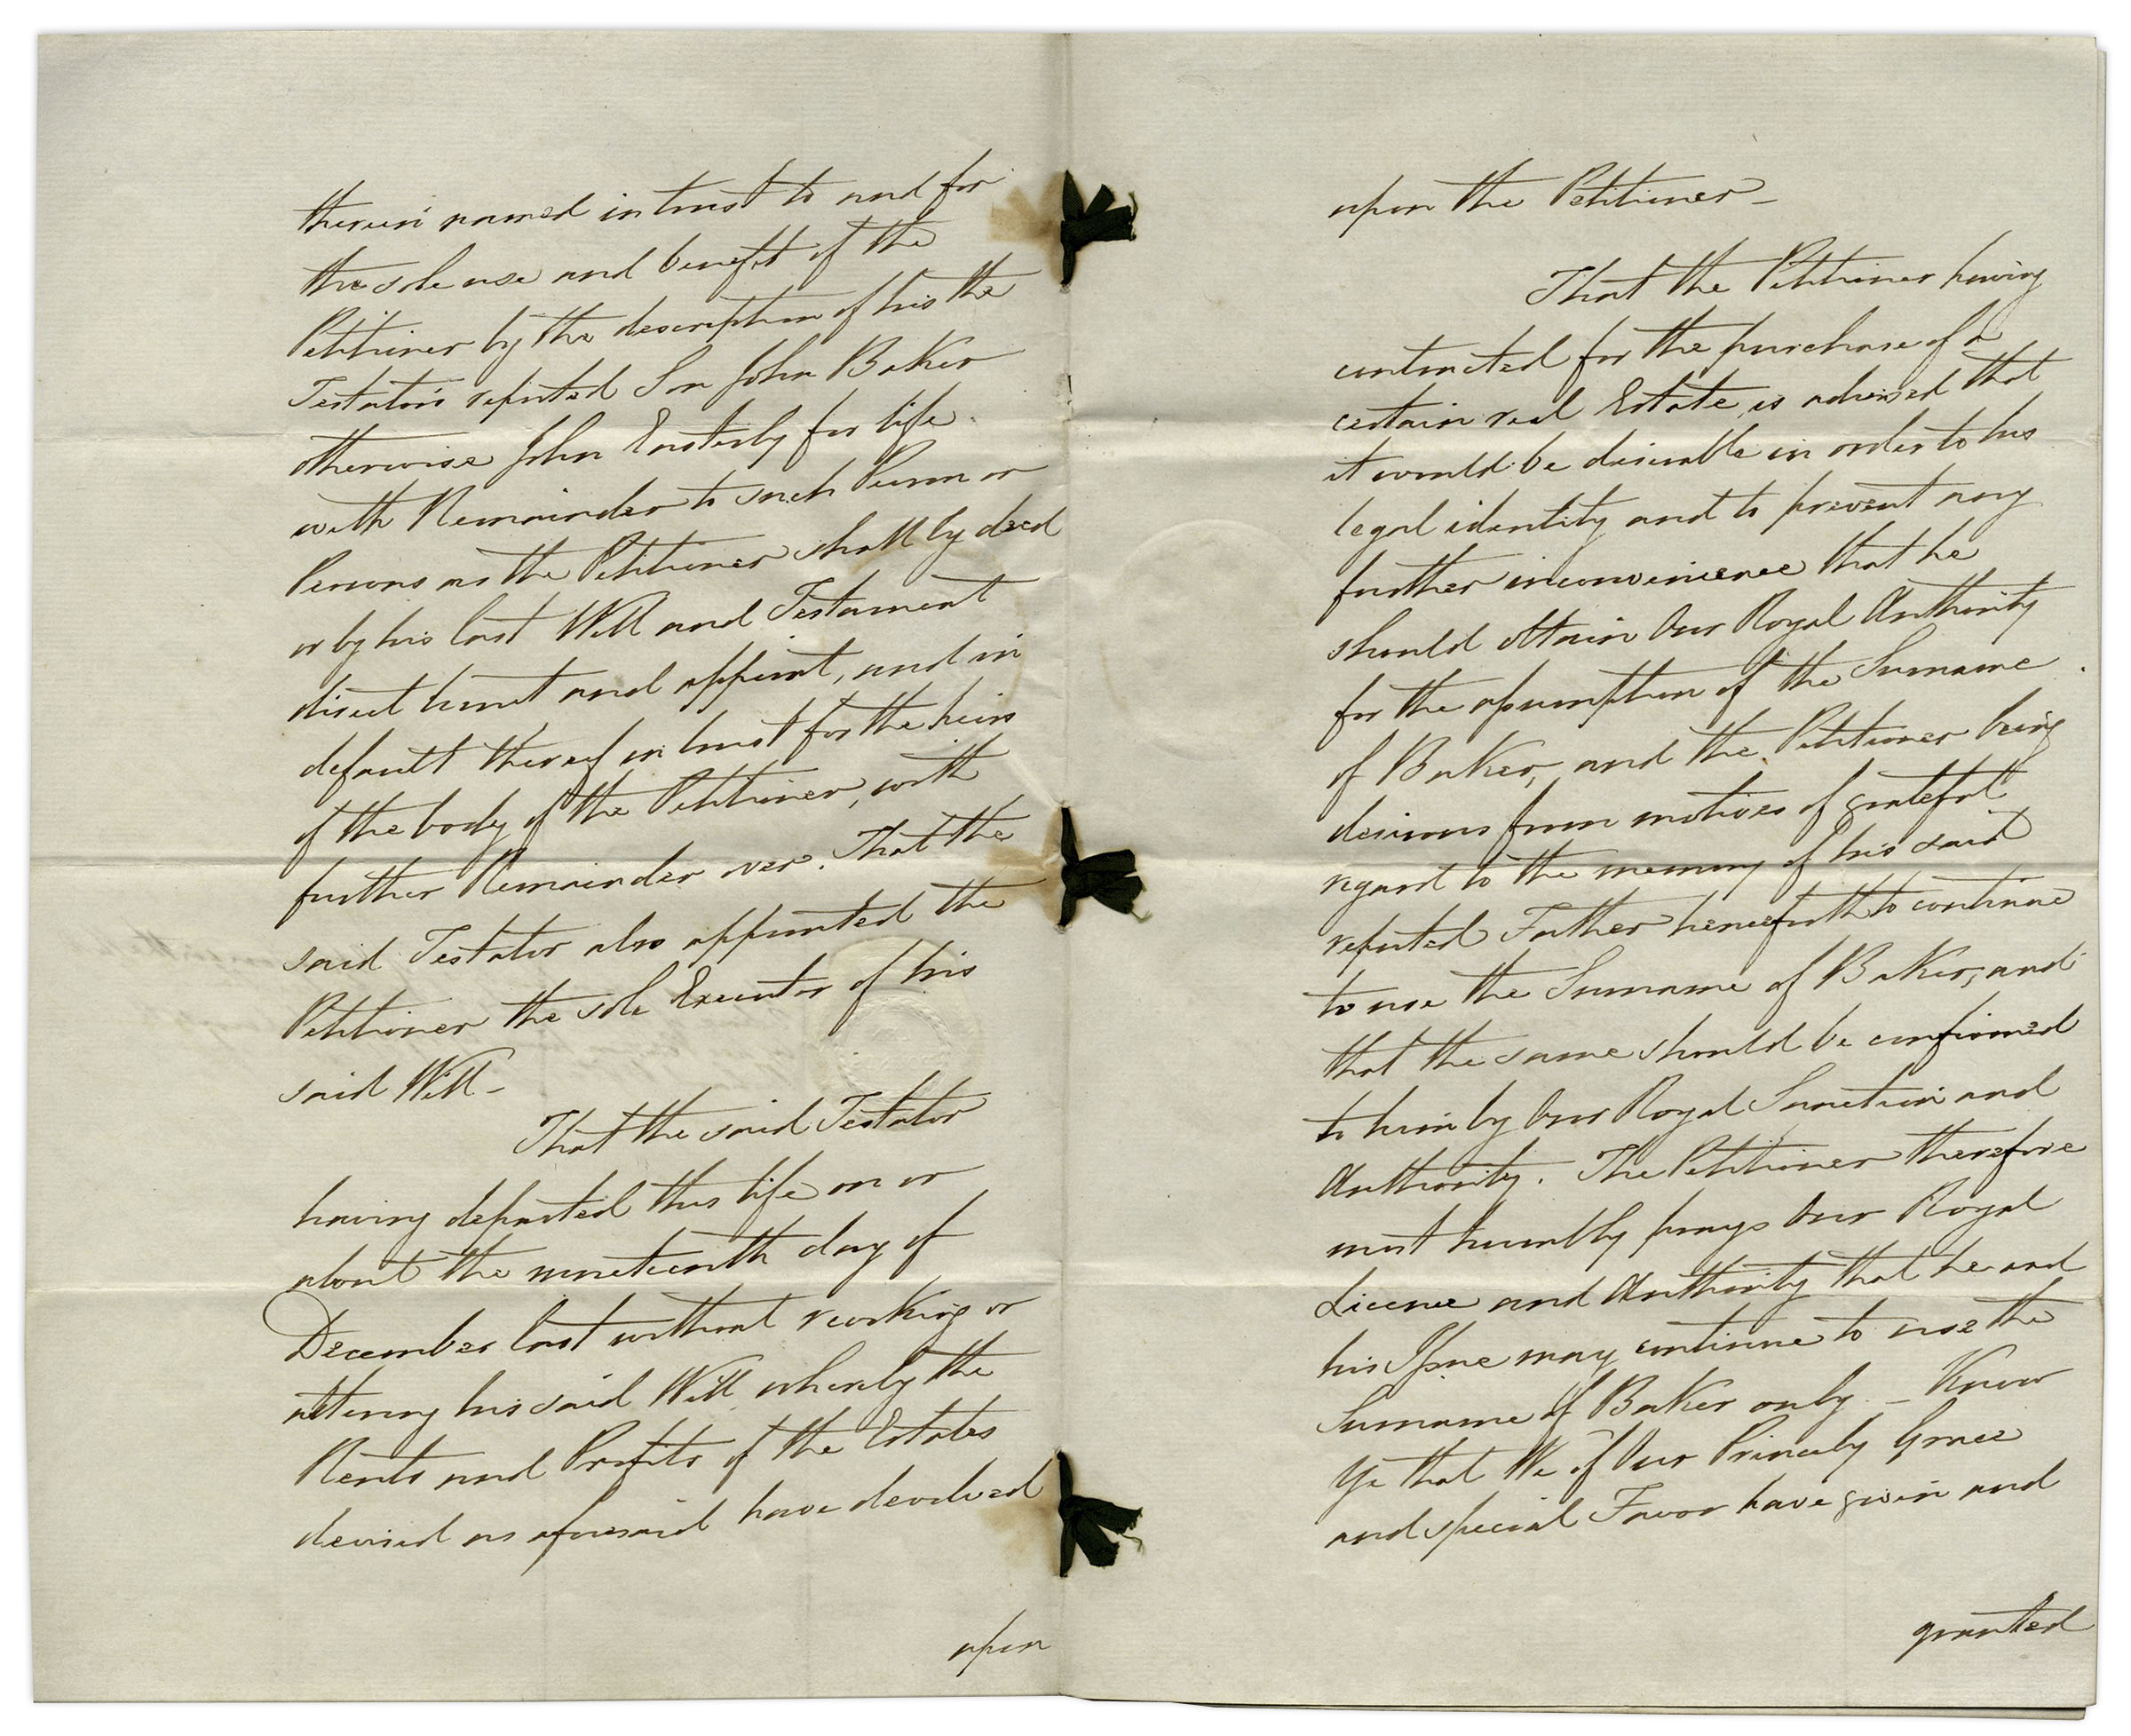 therein named in trust to and for
the sole use and benefit of the
Petitioner by the description of his the
Testators reputed Son John Baker
otherwise John Easterby for life
with Remainder to such Person or
Persons as the Petitioner shall by deed
or by his last Will and Testament
direct limit and appoint, and in
default thereof in trust for the heirs
of the body of the Petitioner, with
further Remainder over. That the
said Testator also appointed the
Petitioner the sole Executor of his
said Will_
That the said Testator
having departed this life on or
about the nineteenth day of
December last without revoking or
altering his said Will whereby the
Rents and Profits of the Estates
devised as aforesaid have devolved
upon
upon the Petitioner_
That the Petitioner having
contracted for the purchase of a
certain real Estate is advised that
it would be desirable in order to his
legal identity and to prevent any
further inconvenience that he
should obtain Our Royal Authority
for the assumption of the Surname
of Baker, and the Petitioner being
desirous from motives of grateful
regard to the memory of his said
reputed Father henceforth to continue
to use the Surname of Baker, and
that the same should be confirmed
to him by Our Royal Sanction and
Authority. The Petitioner therefore
most humbly prays Our Royal
Licence and Authority that he and
his Issue may continue to use the
Surname of Baker only _ Know
Ye that We of Our Princely Grace
and special Favor have given and
granted